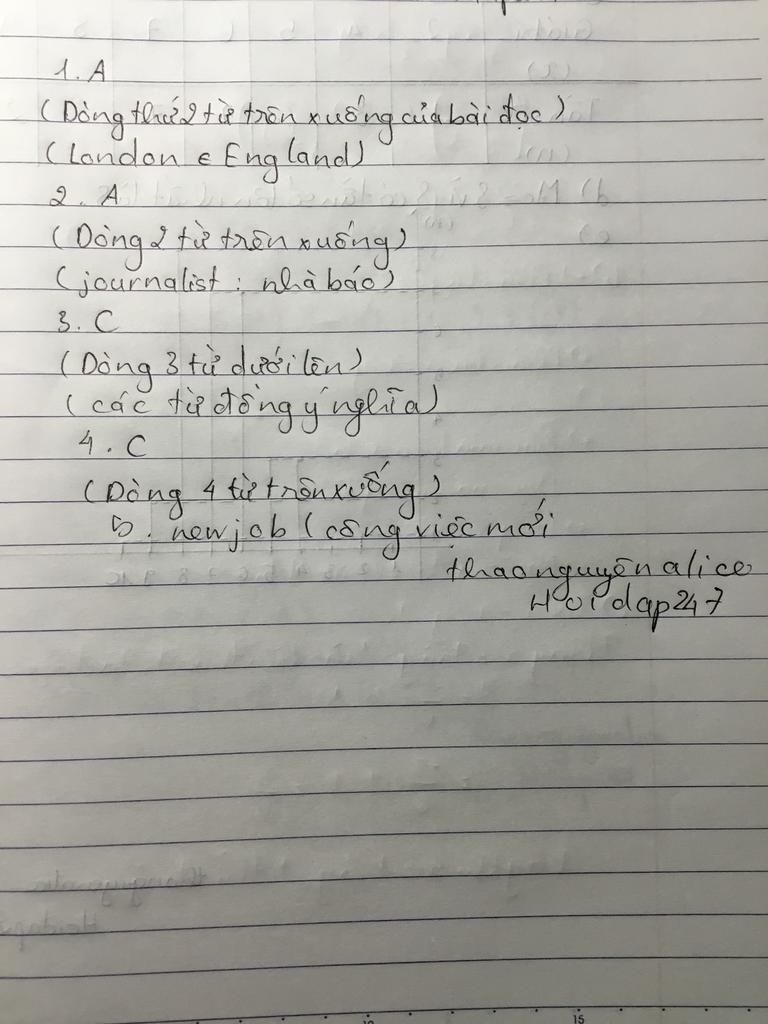 1. A
(Dòng thứ 2 từ trên xuống của bài đọc)
(London ∈ England)
2. A
(Dòng 2 từ trên xuống)
(journalist : nhà báo)
3. C
(Dòng 3 từ dưới lên)
(các từ đồng ý nghĩa)
4. C
(Dòng 4 từ trên xuống)
5. new job (công việc mới
thaonguyênalice
Hoidap247
15